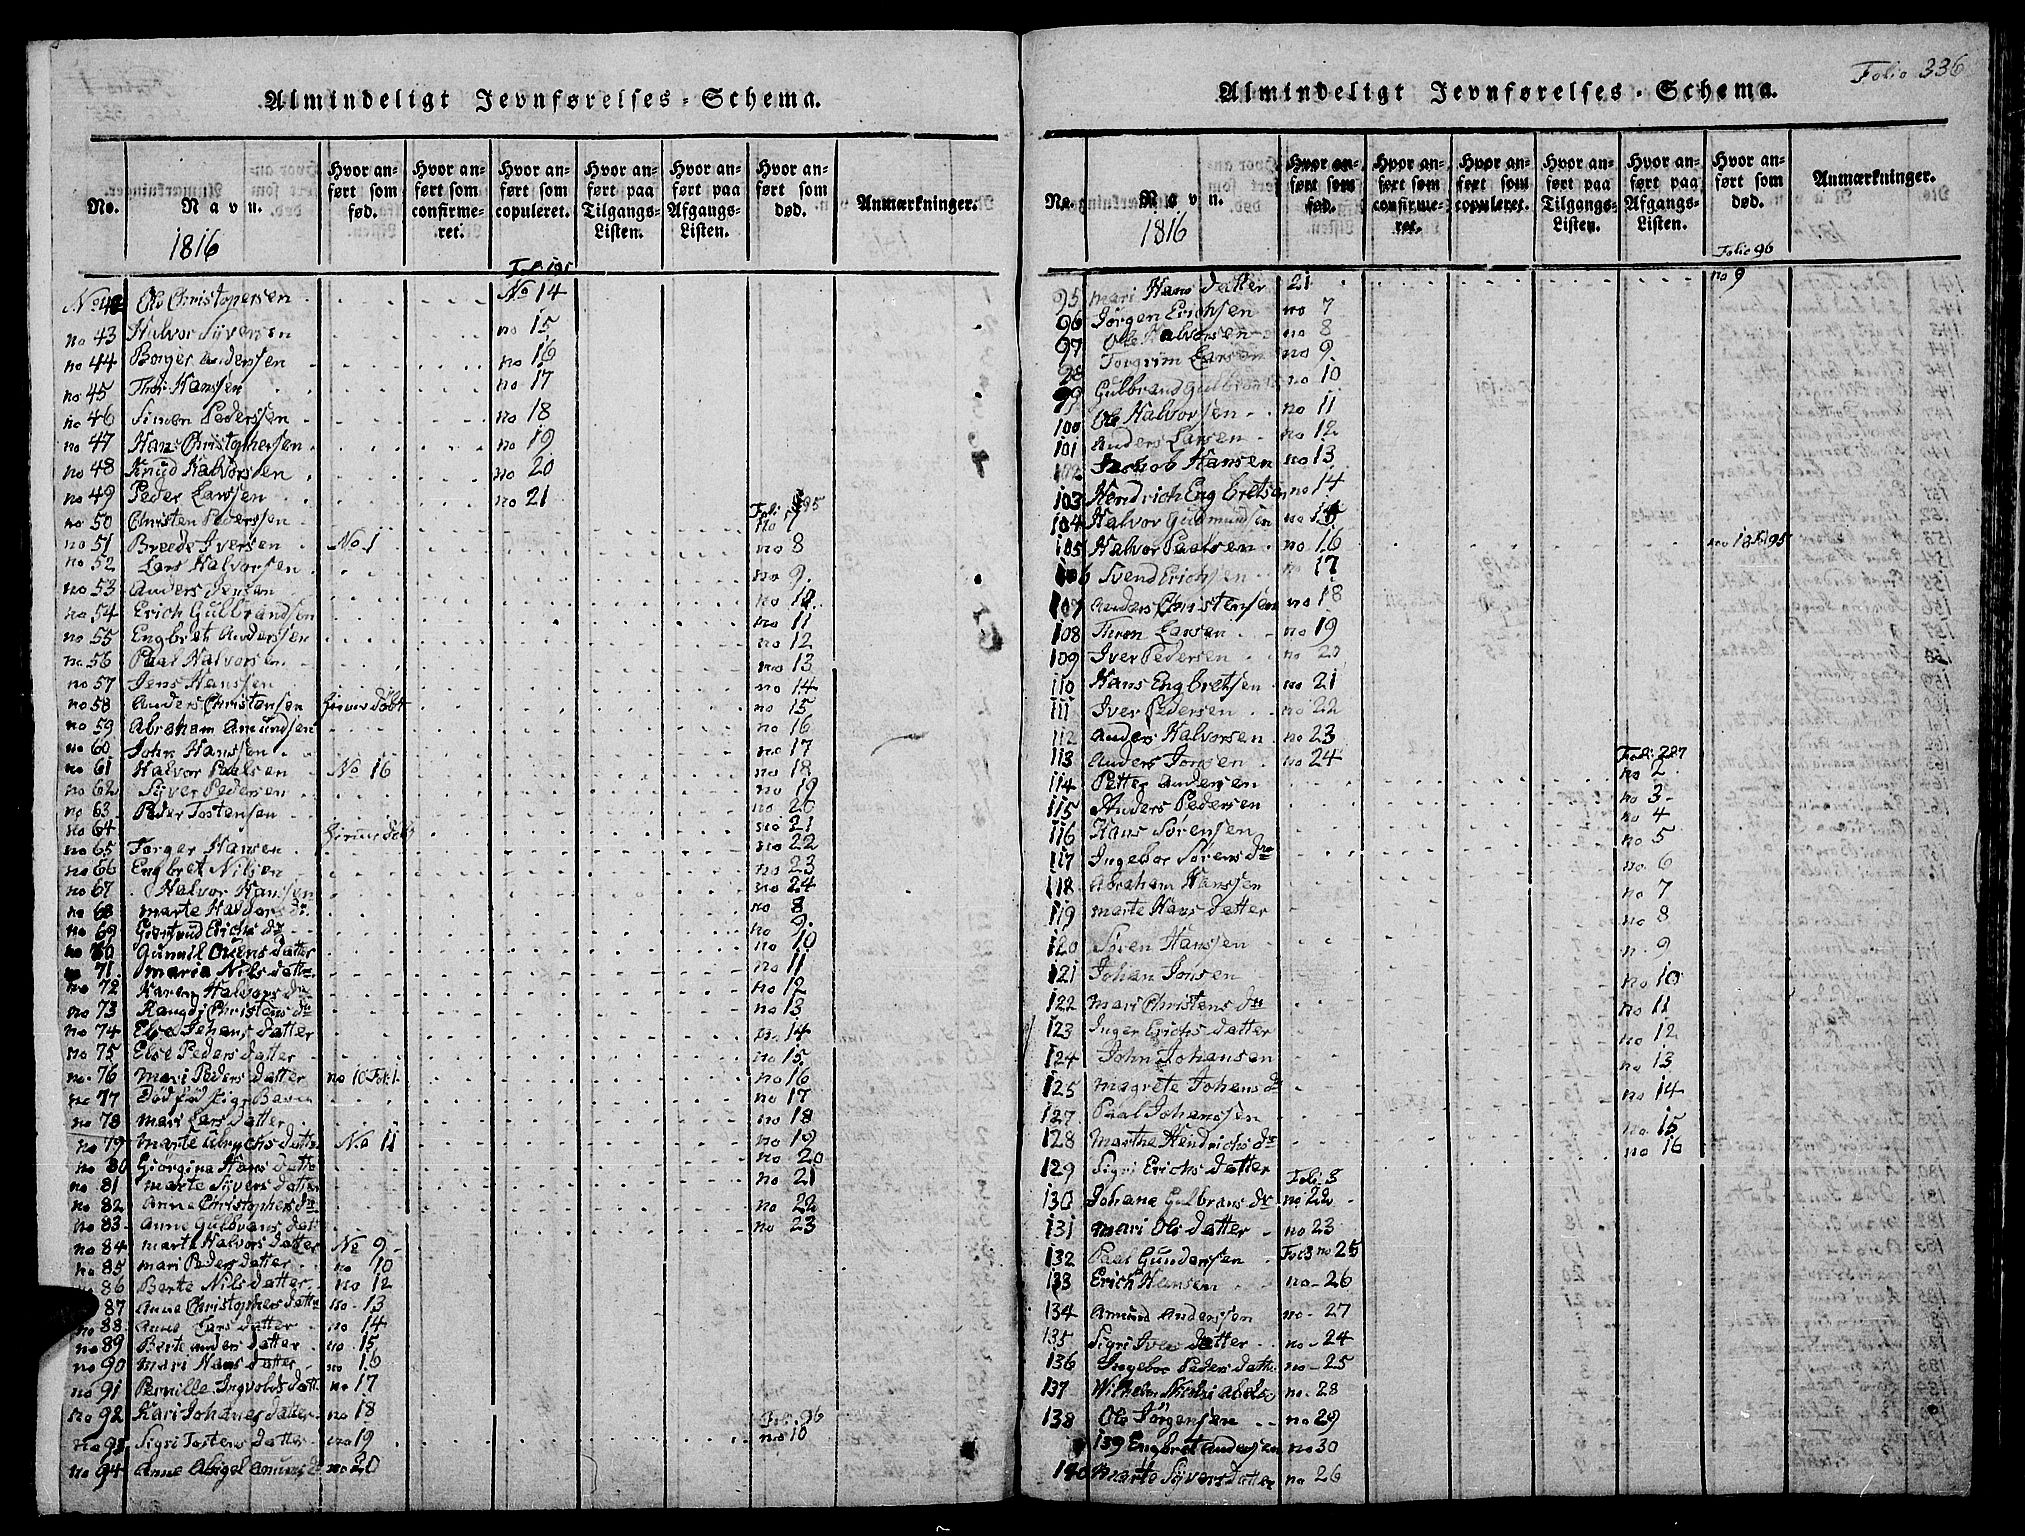 Almindeligt Jevnførelses-Schema.
No.
Navn.
1816
Hvor an-
ført som
fød.
Hvor an-
ført som
confirme-
ret.
Hvor an-
ført som
copuleret.
Hvor an-
ført paa
Tilgangs-
Listen.
Hvor an-
ført paa
Afgangs-
Listen.
Hvor an-
ført som
død.
Anmærkninger.
No 42 Ole Christopersen No 14
no 43 Halvor Syversen no 15
no 44 Borger Andersen no 16
no 45 Thor Hanssen no 17
no 46 Simen Pederssen no 18
no 47 Hans Christophersen no 19
no 48 Knud Halvorsen no 20
no 49 Peder Larssen no 21
no 50 Christen Pederssen no 7
no 51 Breede Iversen No 1 no 8
no 52 Lars Halvorsen no 9
no 53 Anders Jensen no 10
no 54 Erich Gulbrandsen no 11
no 55 Engbret Anderssen no 12
no 56 Paal Halvorsen no 13
no 57 Jens Hanssen no 14
no 58 Anders Christensen no 15
no 59 Abraham Amundsen no 16
no 60 John Hanssen no 17
no 61 Halvor Paelsen No 16 no 18
no 62 Syver Pedersen no 19
no 63 Peder Tostensen no 20
no 64 no 21
no 65 Torger Hansen no 22
no 66 Engbret Nilsen no 23
no 67 Halvor Hanssen no 24
no 68 Marte Halvors dr. no 8
no 69 Giertrud Erichs dr no 9
no 70 Gunnil Ovens datter no 10
no 71 Maria Nils datter no 11
no 72 Karen Halvors dr no 12
no 73 Rangdi Christens dr no 13
no 74 Else Johans datter no 14
no 75 Else Peders datter no 15
no 76 Mari Peders datter no 10 Fol: 1 no 16
no 77 Dødfød Pige Barn no 17
no 78 Mari Lars datter no 18
no 79 Marte Ulrichs datter No 11 no 19
no 80 Giörgine Hans datter no 20
no 81 Marte Syvers datter no 21
no 82 Anne Christophers dr no 22
no 83 Anne Gulbrans datter no 23
no 84 Marte Halvors datter No 9
no 85 Mari Peders datter no 10
no 86 Berte Nils datter no 12
87 Anne Christophers datter no 13
no 88 Anne Lars datter no 14
no 89 Berte Anders datter no 15
no 90 Mari Hans datter no 16
no 91 Pernille Ingvolds datt no 17
no 92 Kari Johanes datter no 18
no 93 Sigri Tostens datter no 19 no 10
no 94 Anne Abigel Amunds d no 20
Folio 336
Almindeligt Jevnførelses-Schema.
No.
Navn.
1816
Hvor an-
ført som
fød.
Hvor an-
ført som
confirme-
ret.
Hvor an-
ført som
copuleret.
Hvor an-
ført paa
Tilgangs-
Listen.
Hvor an-
ført paa
Afgangs-
Listen.
Hvor an-
ført som
død.
Folio 96
Anmærkninger.
95 Mari Hans datter 21 no 9
96 Jörgen Erichsen no 7
97 Ole Halvorsen no 8
98 Torgrim Larsen no 9
99 Gulbrand Gulbrand no 10
100 Ole Halvorsen no 11
101 Anders Larsen no 12
102 Jachob Hansen no 13
103 Hendrich Engbretsen no 14
104 Halvor Gudmundsen no 15
105 Halvor Paelsen no 16
106 Svend Erichsen no 17
107 Anders Christensen no 18
108 Thron Larsen no 19
109 Iver Pedersen no 20
110 Hans Engbretsen no 21
111 Iver Pedersen no 22
112 Anders Halvorsen no 23
113 Anders Jonsen no 24
Foli: 287
114 Petter Andersen no 2
115 Anders Pedersen no 3
116 Hans Sörensen no 4
117 Ingebor Sörens dr no 5
118 Abraham Hanssen no 6
119 Marte Hans datter no 7
120 Sören Hanssen no 8
121 Johan Jonsen n. 9
122 Mari Christens dr no 10
123 Inger Erichs datter no 11
124 John Johansen no 12
125 Magrete Johans dr no 13
127 Paal Johanssen no 14
128 Marthe Hendrichs dr no 15
129 Sigri Erichs datter no 16
Foli: 3
130 Johane Gulbrans dr no 22
131 Mari Ols datter no 23
132 Paal Gundersen Fol 3 no 25
133 Erich Hansen no 26
134 Amund Anderssen no 27
135 Sigri Ivers datter no 24
136 Ingebor Peders datter no 25
137 no 28
138 Ole Jörgensen no 29
139 Engbret Andersen no 30
140 Marte Syvers datter no 26